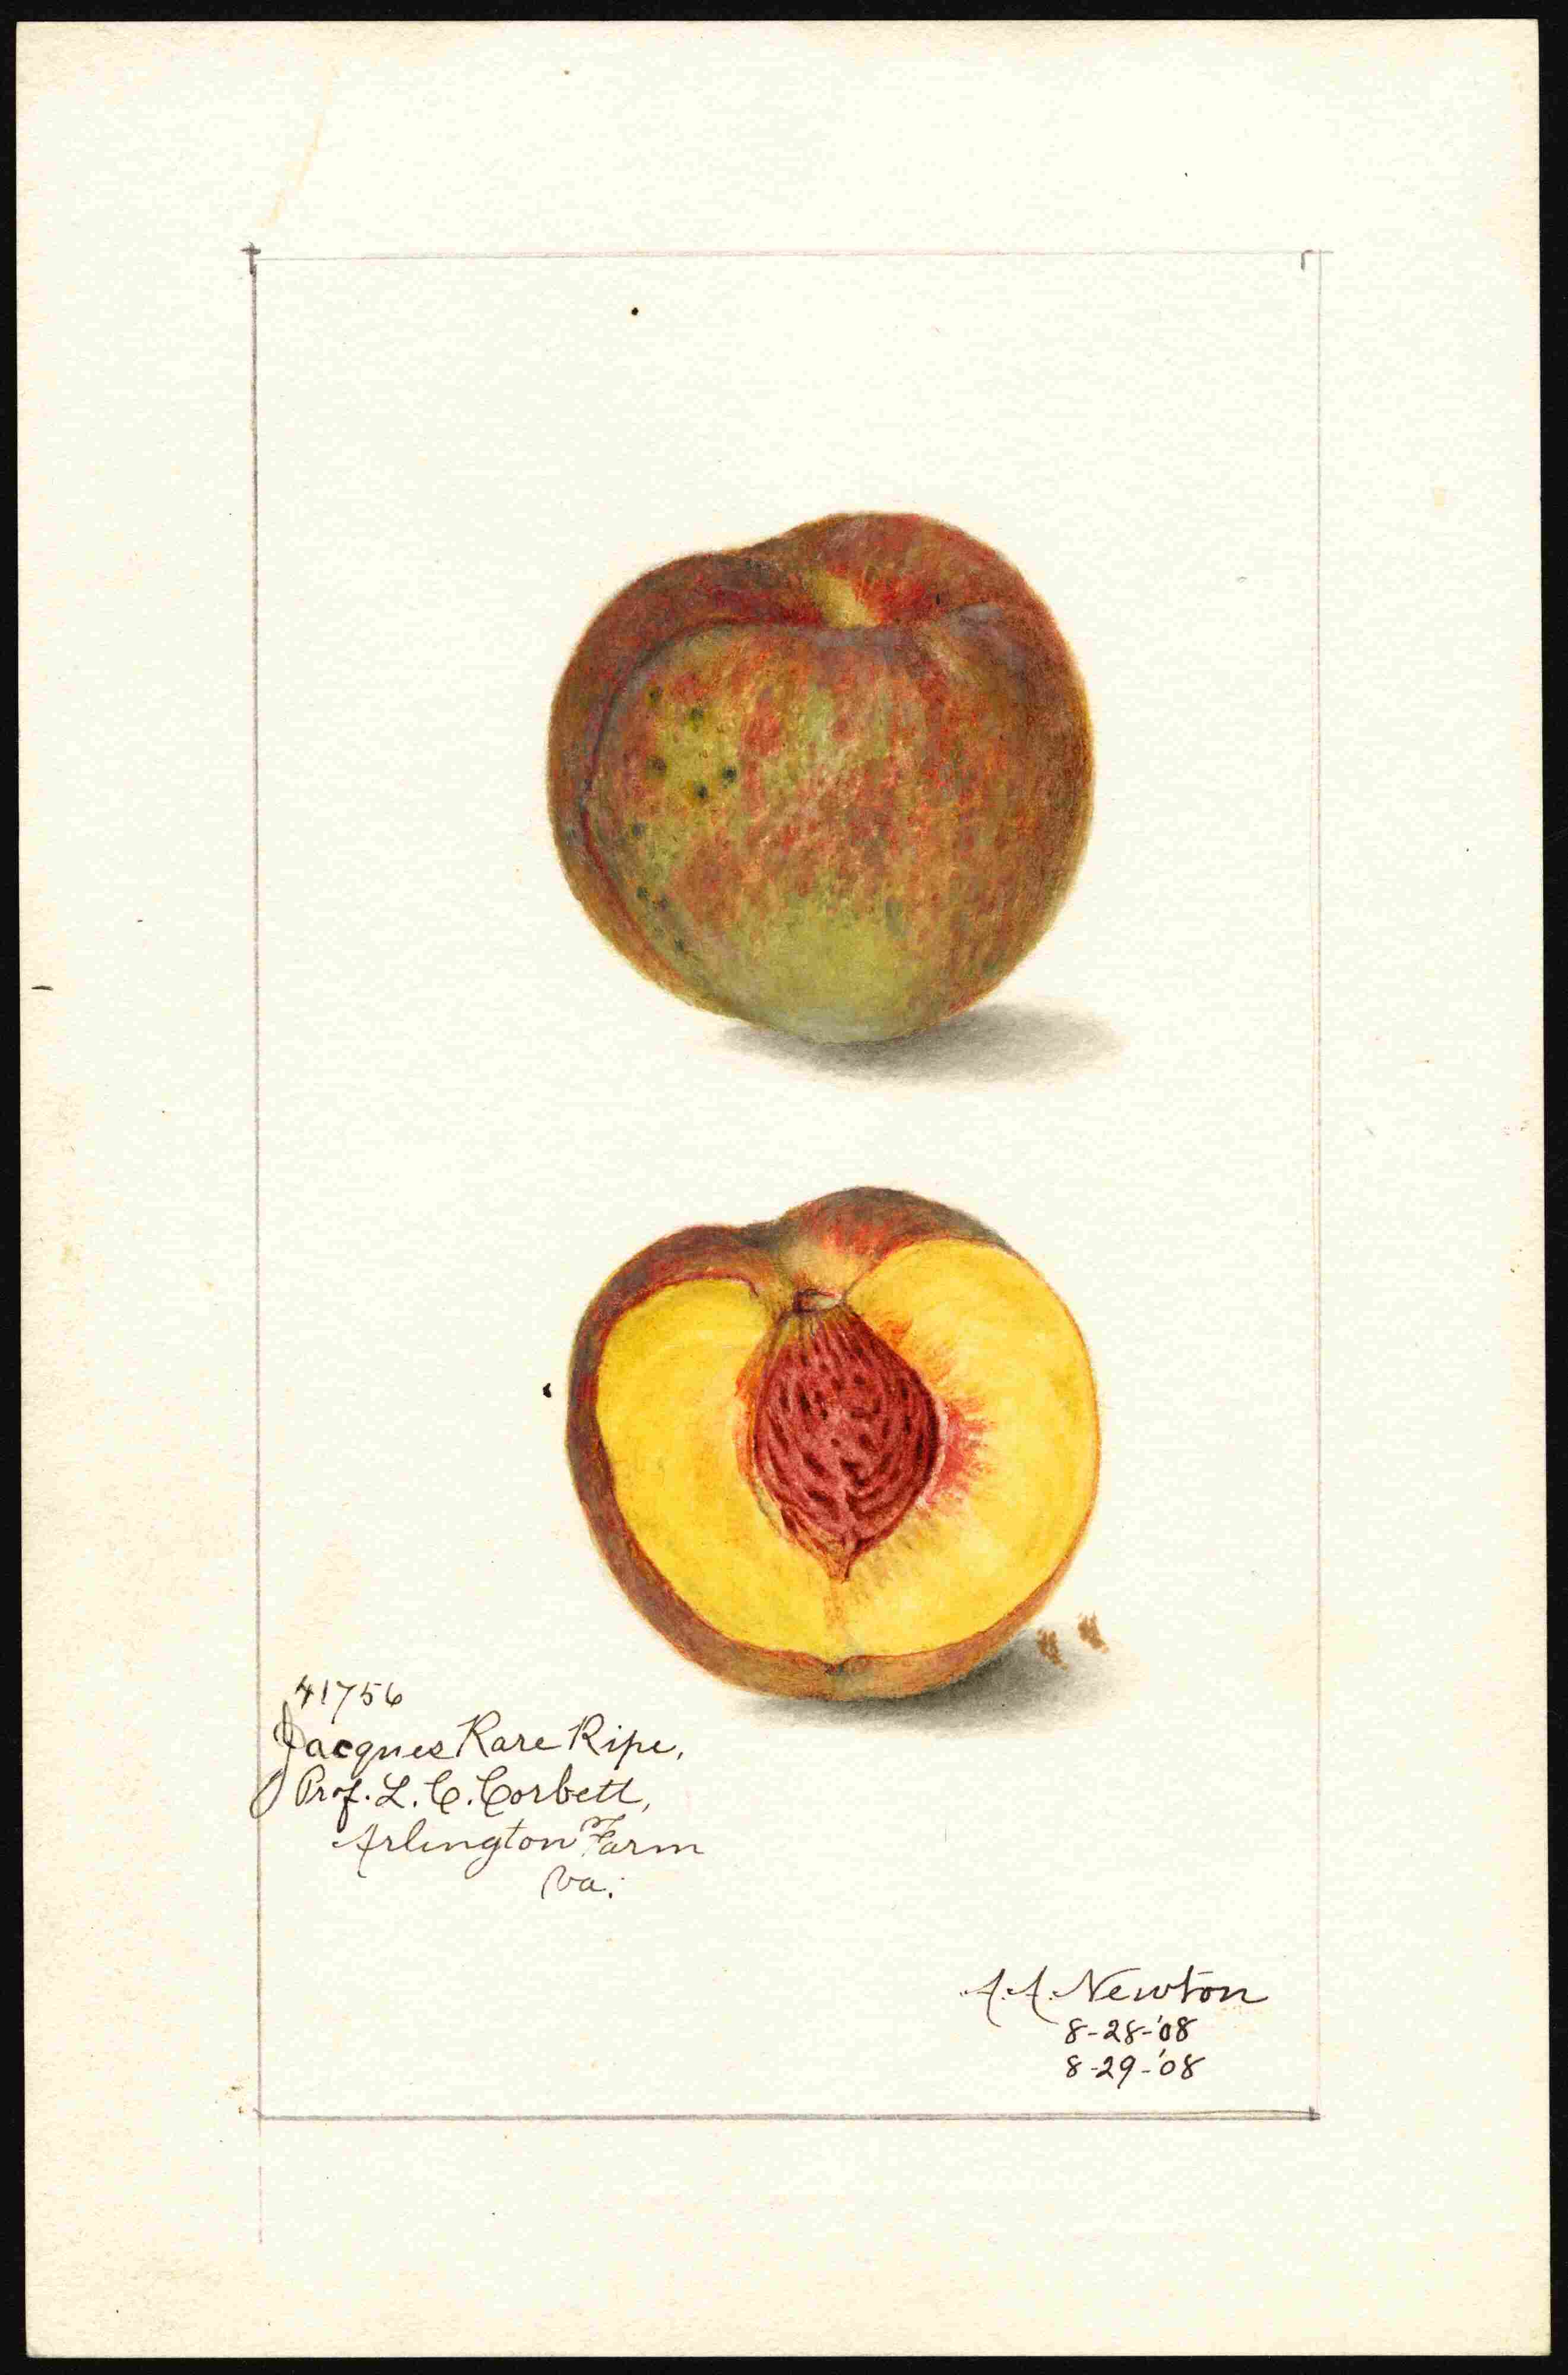 41756
Jacques Rare Ripe,
Prof. L. C. Corbett,
Arlington Farm
Va.
A. A. Newton
8-28-'08
8-29-'08